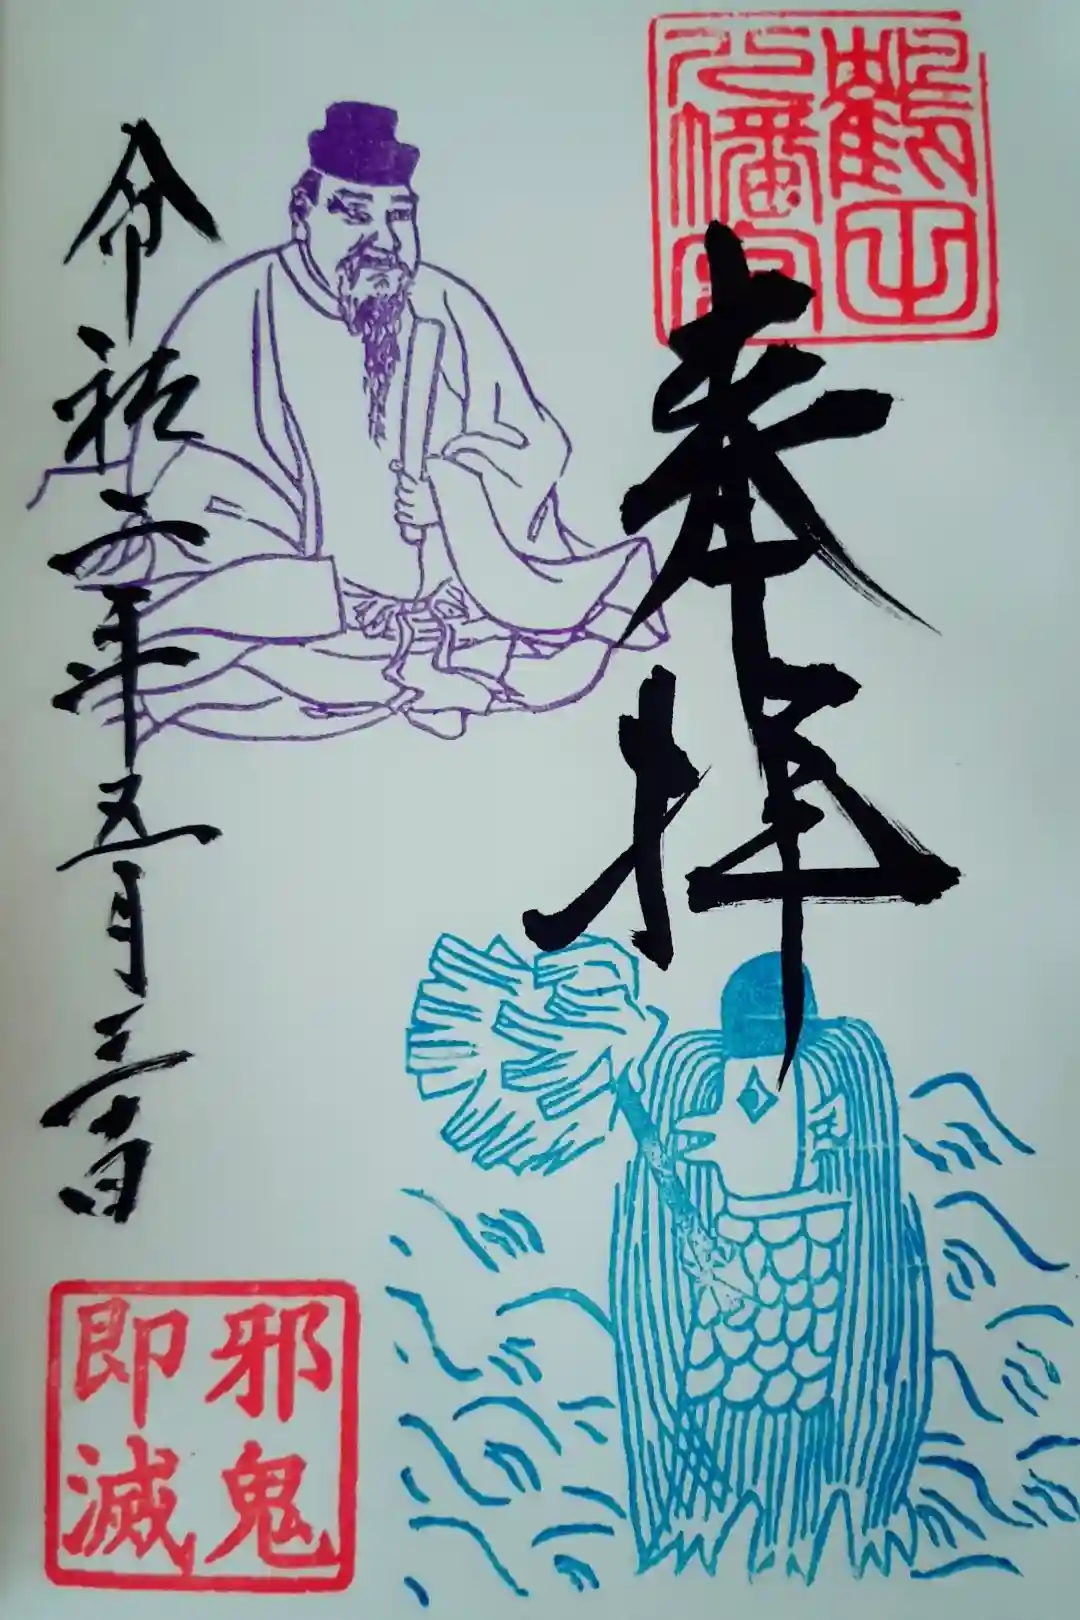 鶴山
八幡宮
奉拝
令和二年五月三十日
邪鬼
即滅